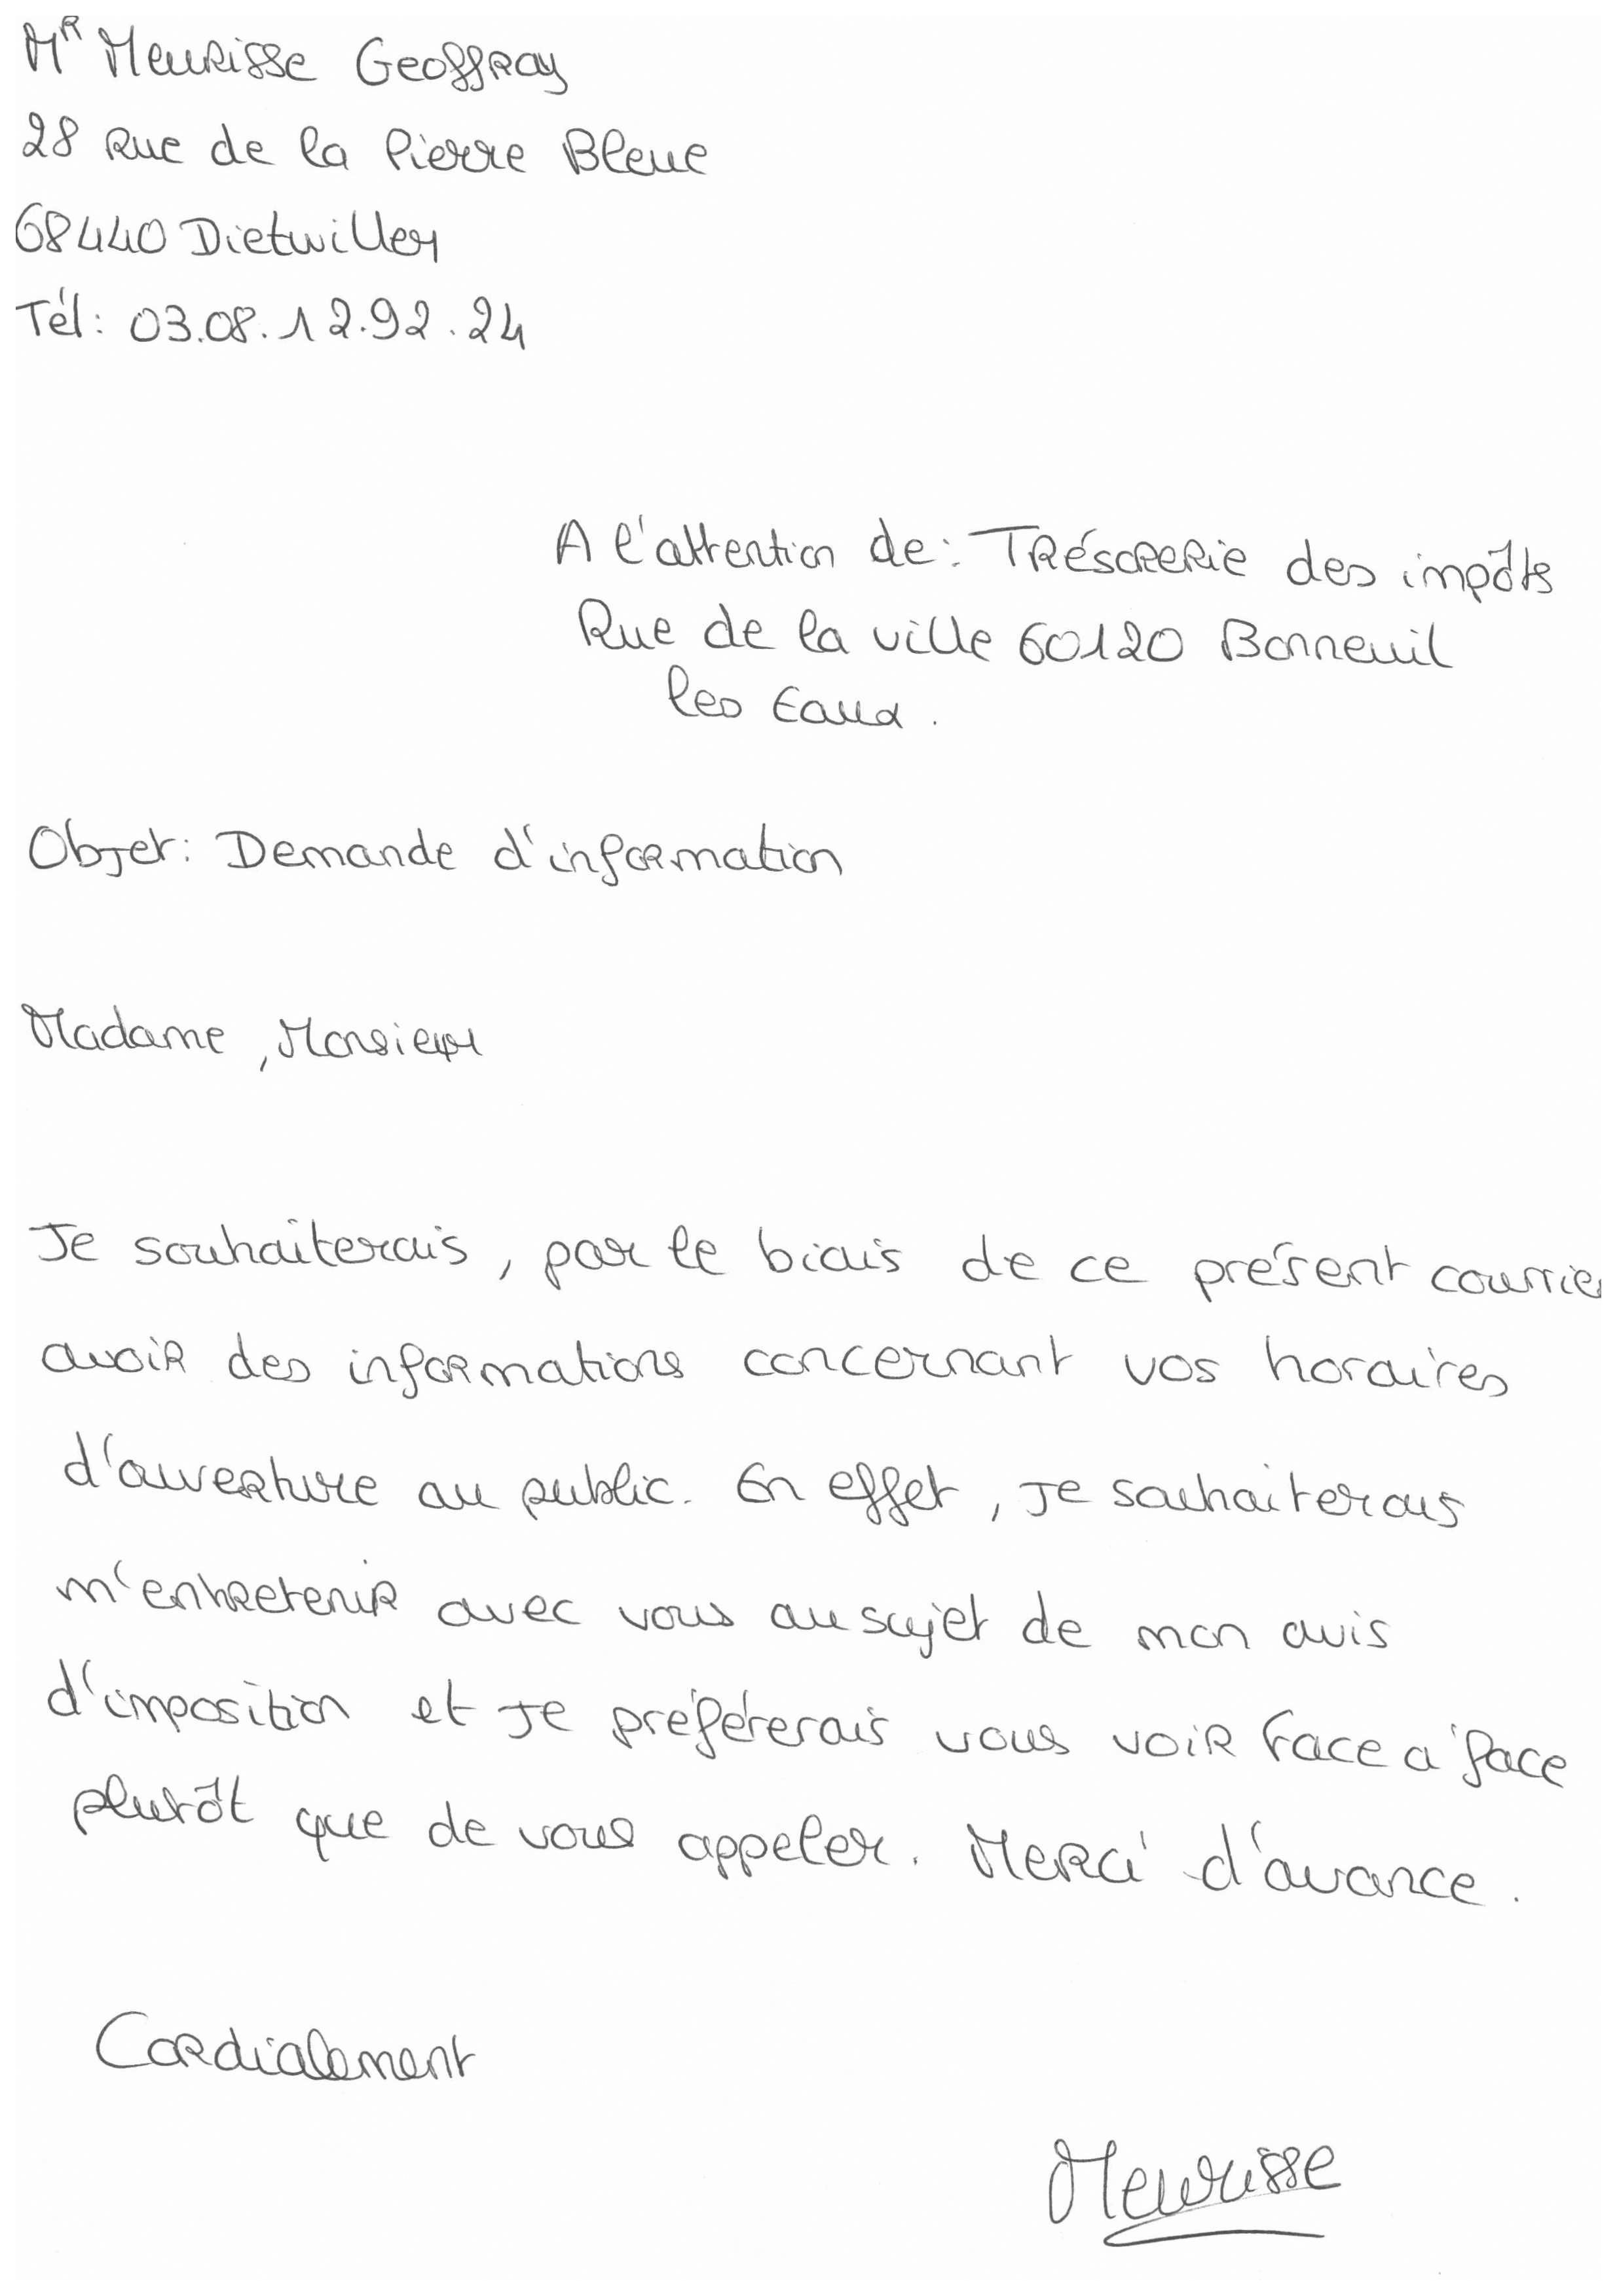 Mr Meurisse Geoffray
28 Rue de la Pierre Bleue
68440 Dietwiller
Tél: 03.08.12.92.24
A l'attention de: Trésorerie des impôts
Rue de la ville 60120 Bonneuil
les Eaux.
Objet: Demande d'information
Madame, Monsieur
Je souhaiterais, par le biais de ce présent courrier
avoir des informations concernant vos horaires
d'ouverture au public. En effet, je souhaiterais
m'entretenir avec vous au sujet de mon avis
d'imposition et je préférerais vous voir face à face
plutôt que de vous appeler. Merci d'avance.
Cordialement
Meurisse